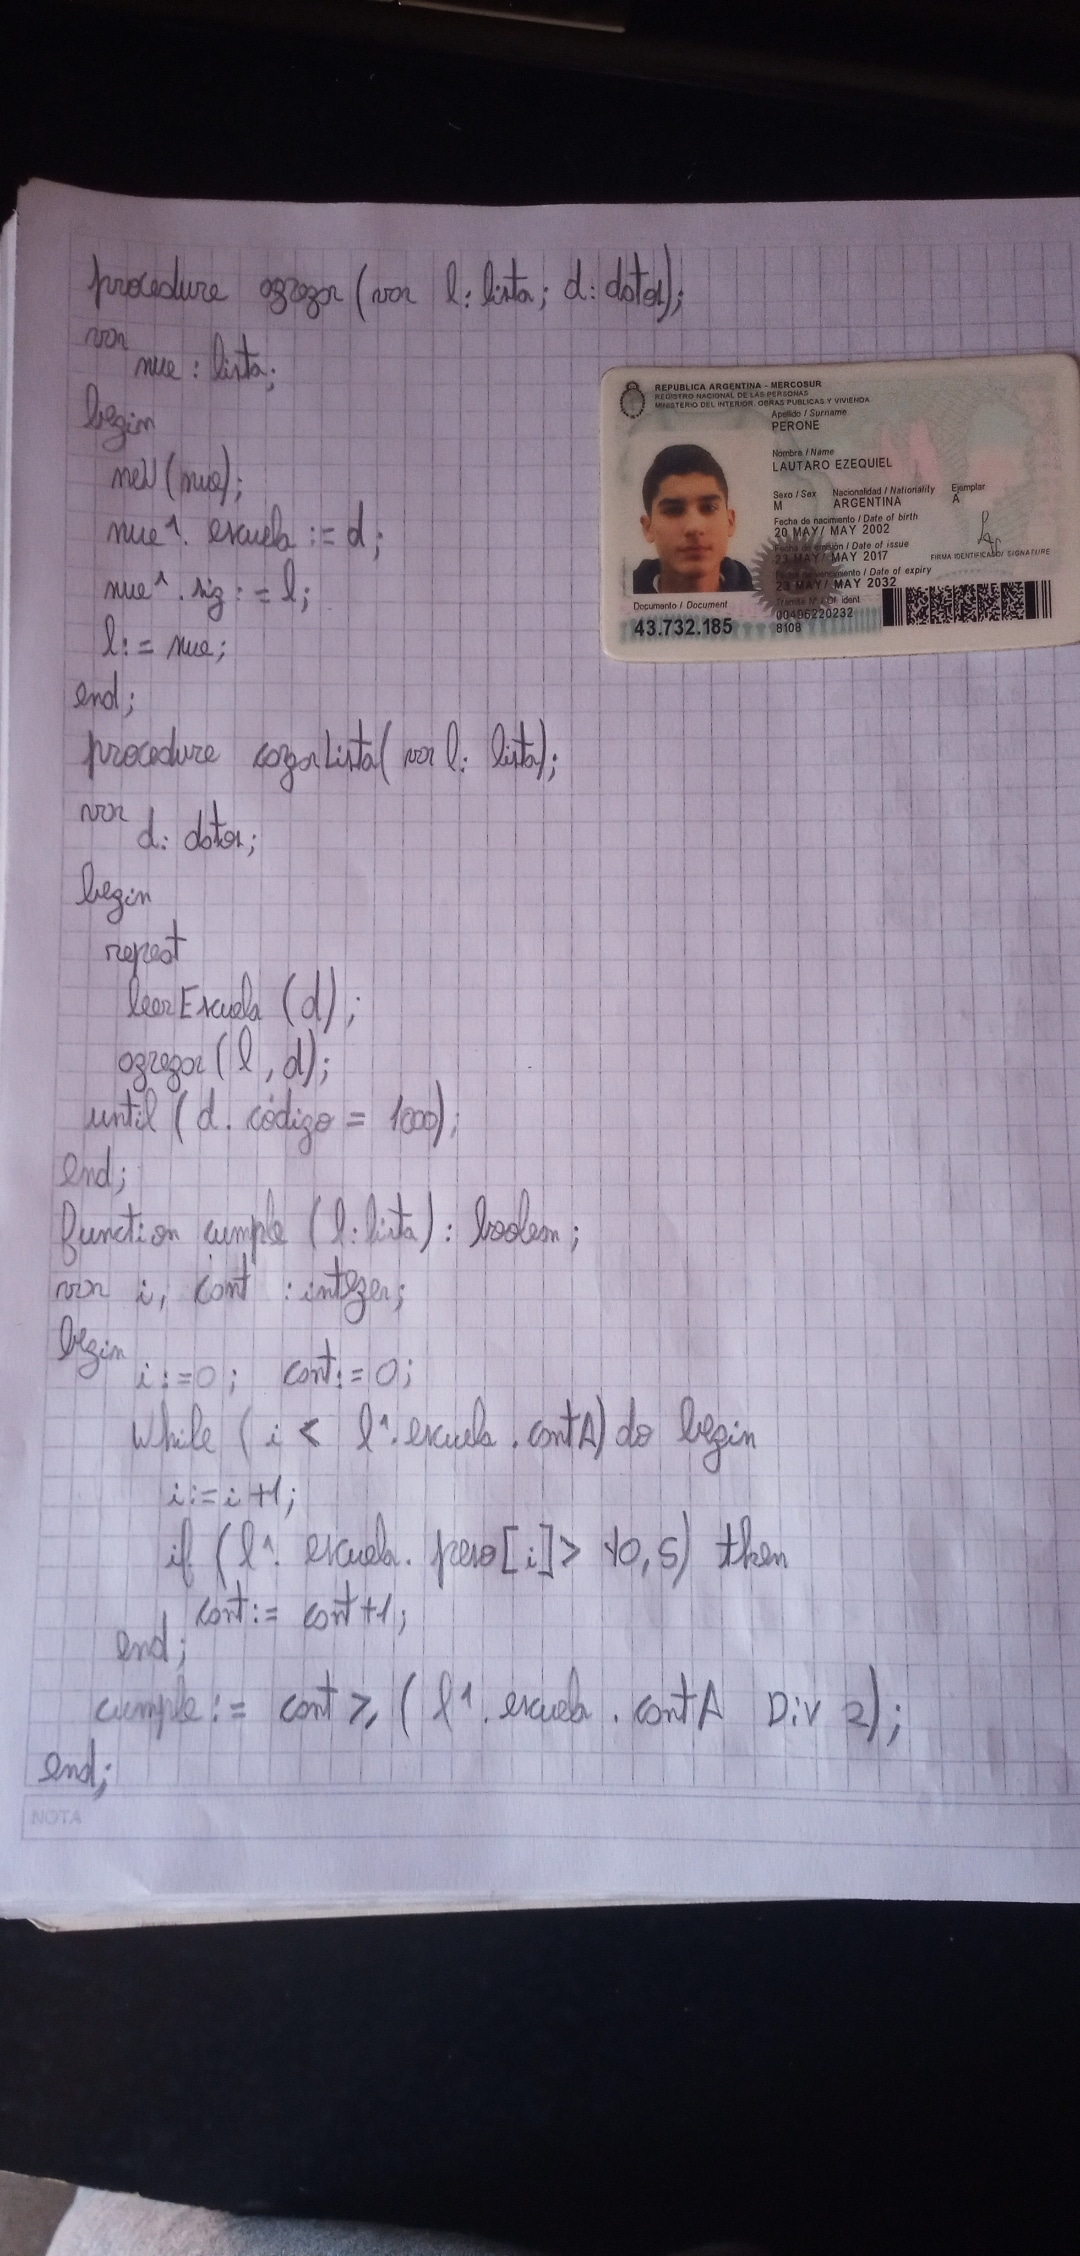 procedure agregar (var l: lista; d: datos);
var
nue : lista;
begin
new (nue);
nue^. escuela := d;
nue^. sig := l;
l := nue;
end;
procedure cargarLista( var l: lista);
var
d: datos;
begin
repeat
leerEscuela (d);
agregar (l, d);
until (d. código = 1000);
end;
function cumple (l: lista) : boolean;
var i, cont : integer;
begin
i := 0; cont := 0;
while (i < l^. escuela . contA) do begin
i := i +1;
if (l^. escuela. peso [i] > 10,5) then
cont := cont +1;
end;
cumple := cont ≥ (l^. escuela . contA Div 2);
end;
NOTA
REPUBLICA ARGENTINA - MERCOSUR
REGISTRO NACIONAL DE LAS PERSONAS
MINISTERIO DEL INTERIOR, OBRAS PUBLICAS Y VIVIENDA
Apellido / Surname
PERONE
Nombre / Name
LAUTARO EZEQUIEL
Sexo / Sex Nacionalidad / Nationality Ejemplar
M ARGENTINA A
Fecha de nacimiento / Date of birth
20 MAY/ MAY 2002
Fecha de emisión / Date of issue
23 MAY/ MAY 2017
FIRMA IDENTIFICADO/ SIGNATURE
Fecha de vencimiento / Date of expiry
23 MAY/ MAY 2032
Documento / Document
43.732.185
Trámite Nº / Of. ident
00496220232
8108